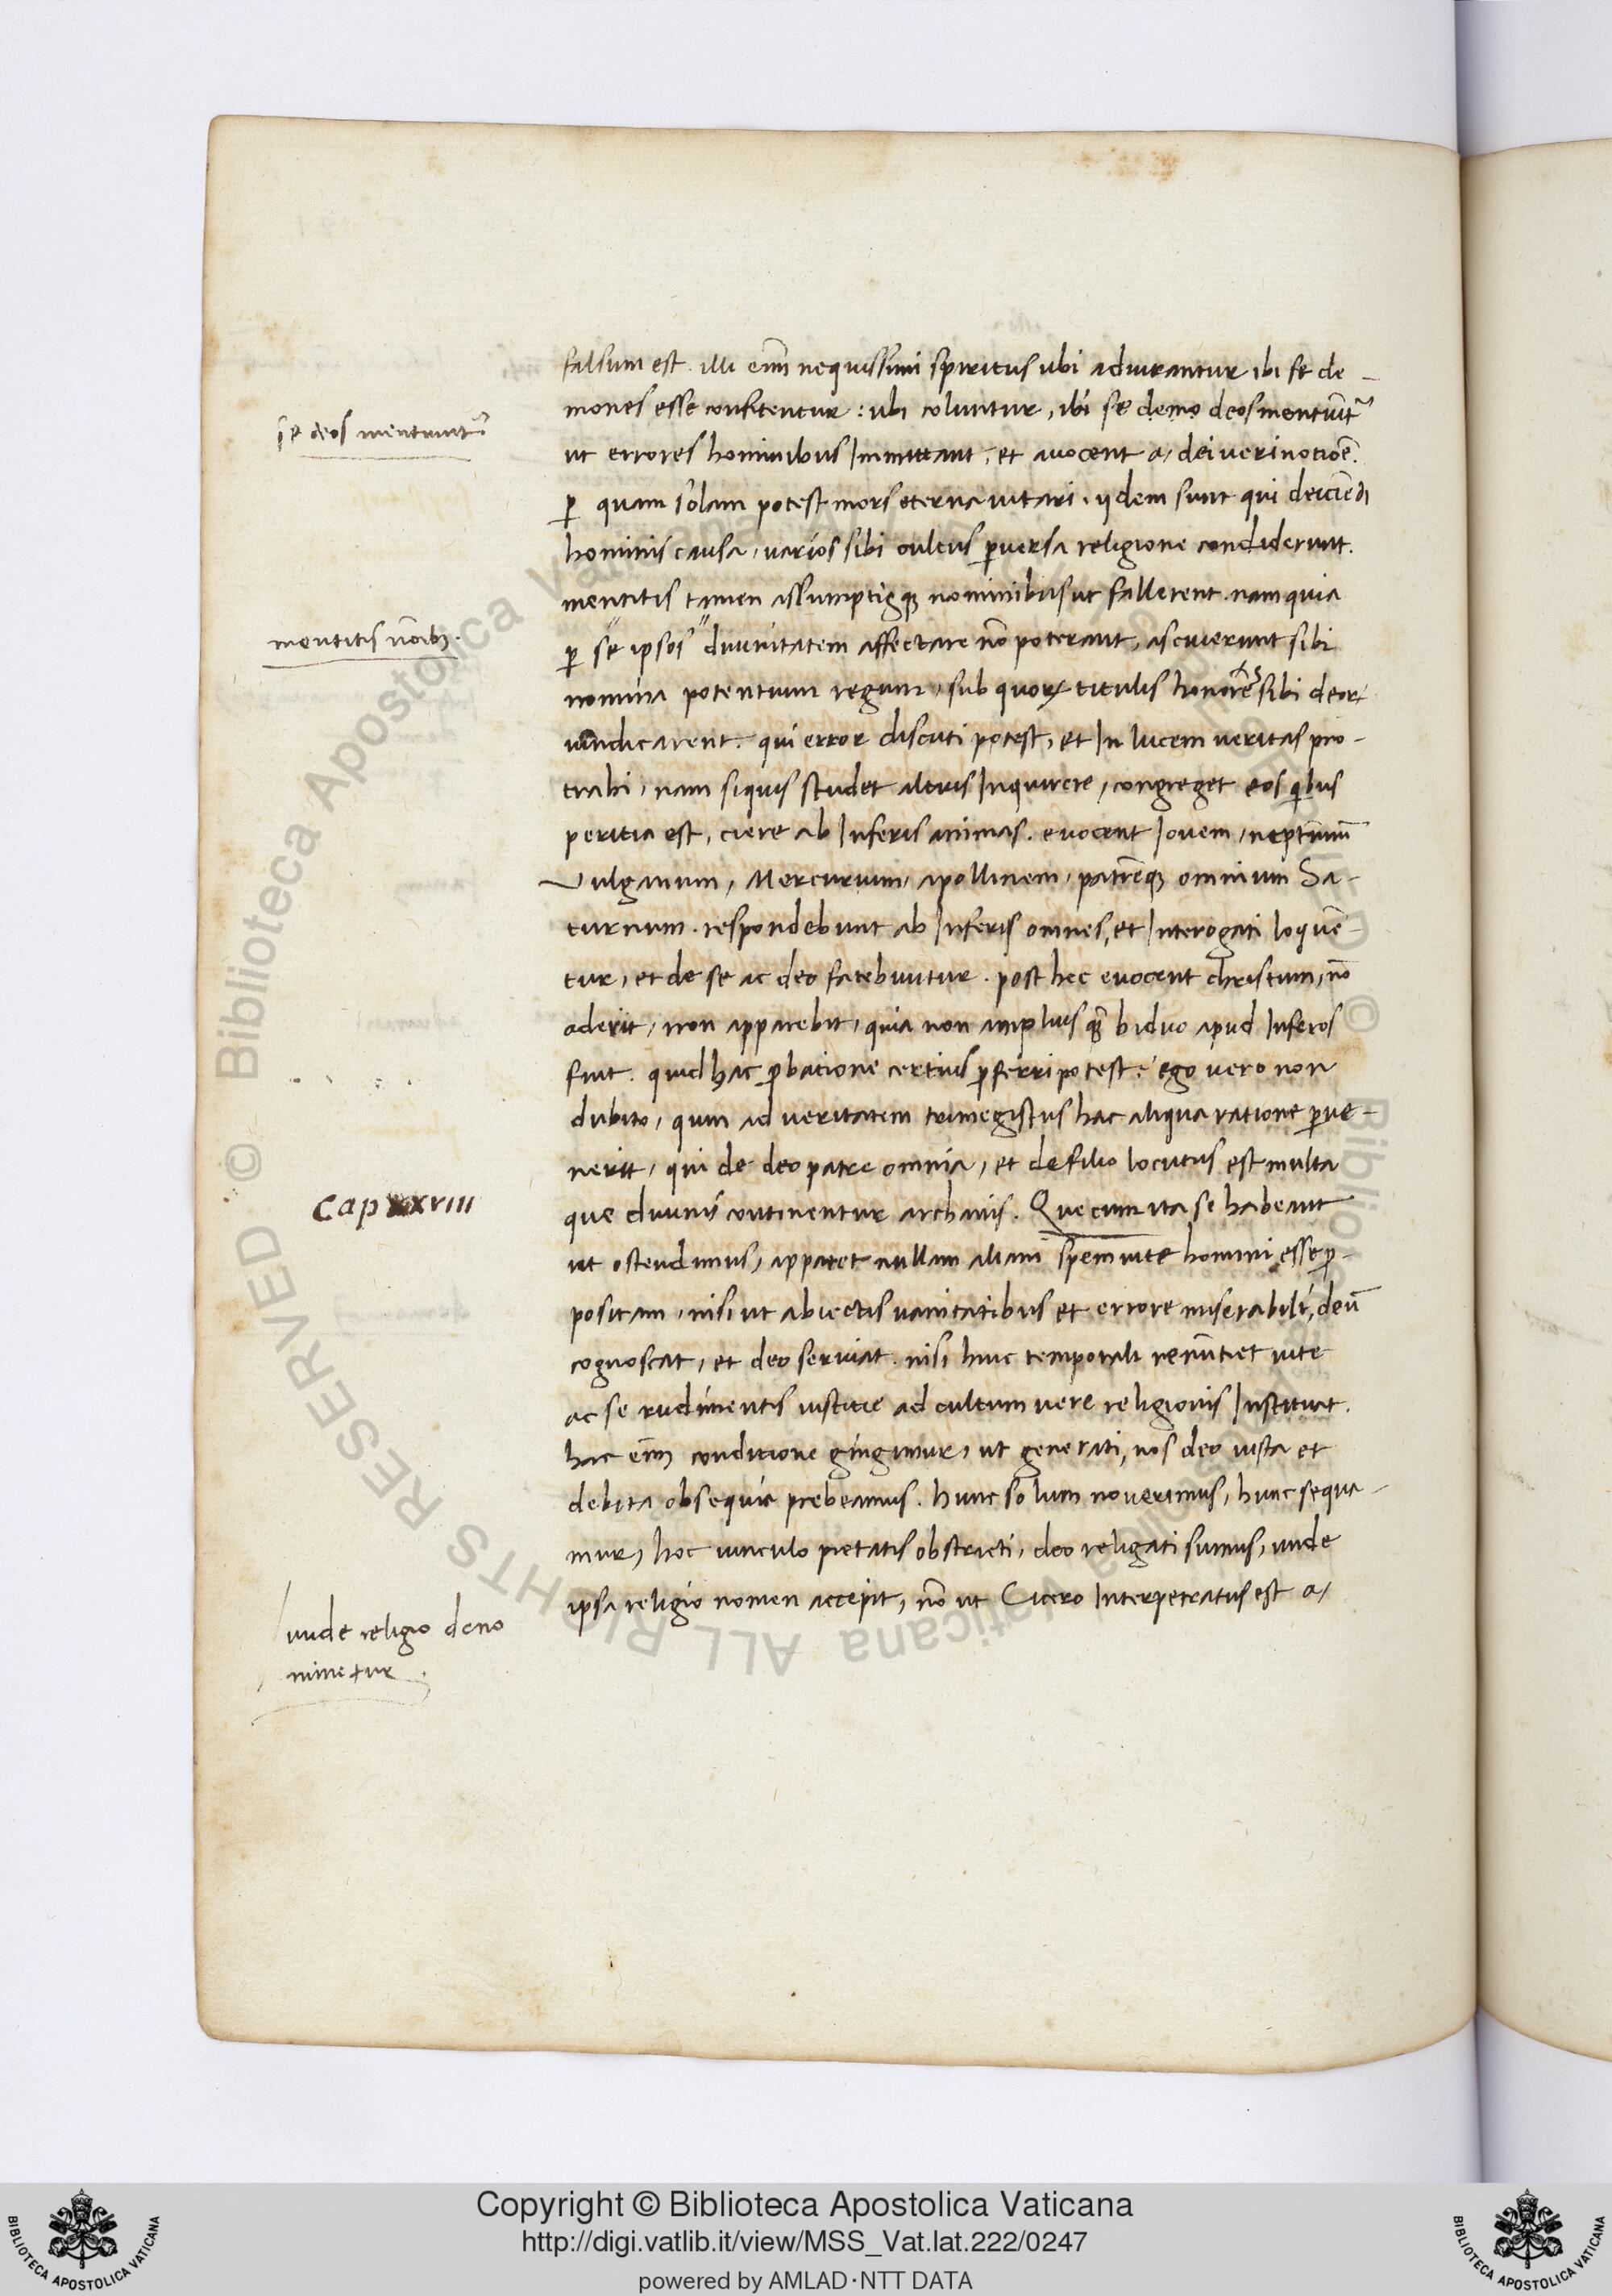 falsum est. illi enī nequissimi spiritus ubi adiurantur ibi se de-
mones esse confitentur: ubi coluntur, ibi se demo deos mentiūt᷑
ut errores hominibus Inmittant, et auocent a, dei ueri notiōe.
ꝑ quam solam potest mors eterna uitari. ijdem sunt qui deiciēdi
hominis causa, uarios sibi cultus ꝑuersa religione condiderunt.
mentitis tamen assumptisqꝫ nominibus ut fallerent. nam quia
ꝑ se ipsos diuinitatem affectare nō poterant, asciuerunt sibi
nomina potentium regum, sub quoꝝ titulis honores sibi deoꝝ
uindicarent. qui error discuti potest, et In lucem ueritas pro-
trahi, nam siquis studet altius Inquirere, congreget eos qͥbus
peritia est, ciere ab Inferis animas. euocent Iouem, neptūnū
Vulganum, Mercurium, apollinem, patrēqꝫ omnium Sa-
turnum. respondebunt ab Inferis omnes, et Interogati loquē-
tur, et de se ac deo fatebuntur. post hec euocent christum, nō
aderit, non apparebit, quia non amplius qꝫ̄ biduo apud Inferos
fuit. quid hac ꝓbatione certius ꝓferri potest? ego uero non
dubito, quin ad ueritatem trimegistus hac aliqua ratione ꝑue-
nerit, qui de deo patre omnia, et de filio locutus est multa
que diuinis continentur archanis. Que cum ita se habeant
ut ostendimus, apparet nullam aliam spem uite homini esse ꝓ-
positam, nisi ut abiectis uanitatibus et errore miserabili, deū
cognoscat, et deo seruiat. nisi huic temporali renūtiet uite
ac se rudimentis iustitie ad cultum uere religionis Instituat.
hac enī conditione gingimur, ut generati, nos deo iusta et
debita obsequia prebeamus. hunc solum nouerimus, hunc sequa-
mur, hoc uinculo pietatis obstricti, deo religati sumus, unde
ipsa religio nomen accepit, nō ut Cicero Interpetratus est a,
se deos mentiunt᷑
mentitis noībꝫ.
Cap xxviii
unde religio deno
minetur
Copyright © Biblioteca Apostolica Vaticana
http://digi.vatlib.it/view/MSS_Vat.lat.222/0247
powered by AMLAD·NTT DATA
BIBLIOTECA APOSTOLICA VATICANA
BIBLIOTECA APOSTOLICA VATICANA
© Biblioteca Apostolica Vaticana ALL RIGHTS RESERVED